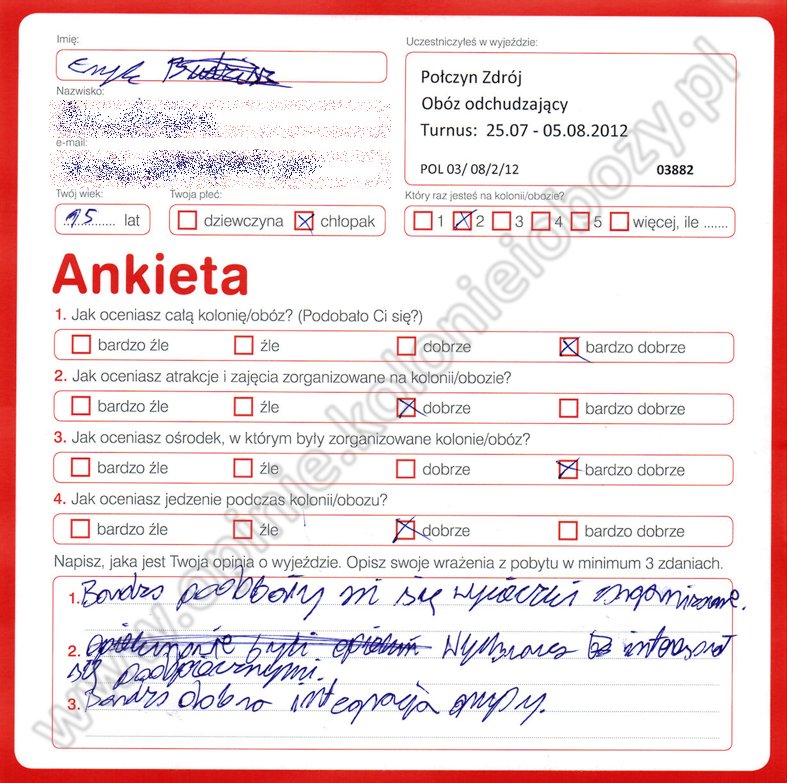 Imię:
Eryk
Nazwisko:
e-mail:
Twój wiek:
15 lat
Twoja płeć:
dziewczyna chłopak
Uczestniczyłeś w wyjeździe:
Połczyn Zdrój
Obóz odchudzający
Turnus: 25.07 - 05.08.2012
POL 03/ 08/2/12 03882
Który raz jesteś na kolonii/obozie?
1 2 3 4 5 więcej, ile .......
Ankieta
1. Jak oceniasz całą kolonię/obóz? (Podobało Ci się?)
bardzo źle źle dobrze bardzo dobrze
2. Jak oceniasz atrakcje i zajęcia zorganizowane na kolonii/obozie?
bardzo źle źle dobrze bardzo dobrze
3. Jak oceniasz ośrodek, w którym były zorganizowane kolonie/obóz?
bardzo źle źle dobrze bardzo dobrze
4. Jak oceniasz jedzenie podczas kolonii/obozu?
bardzo źle źle dobrze bardzo dobrze
Napisz, jaka jest Twoja opinia o wyjeździe. Opisz swoje wrażenia z pobytu w minimum 3 zdaniach.
1. Bardzo podobały mi się wycieczki organizowane.
2. były Wychowawca interesował
się podopiecznymi.
3. Bardzo dobra integracja grupy.
www.opinie.kolonieiobozy.pl